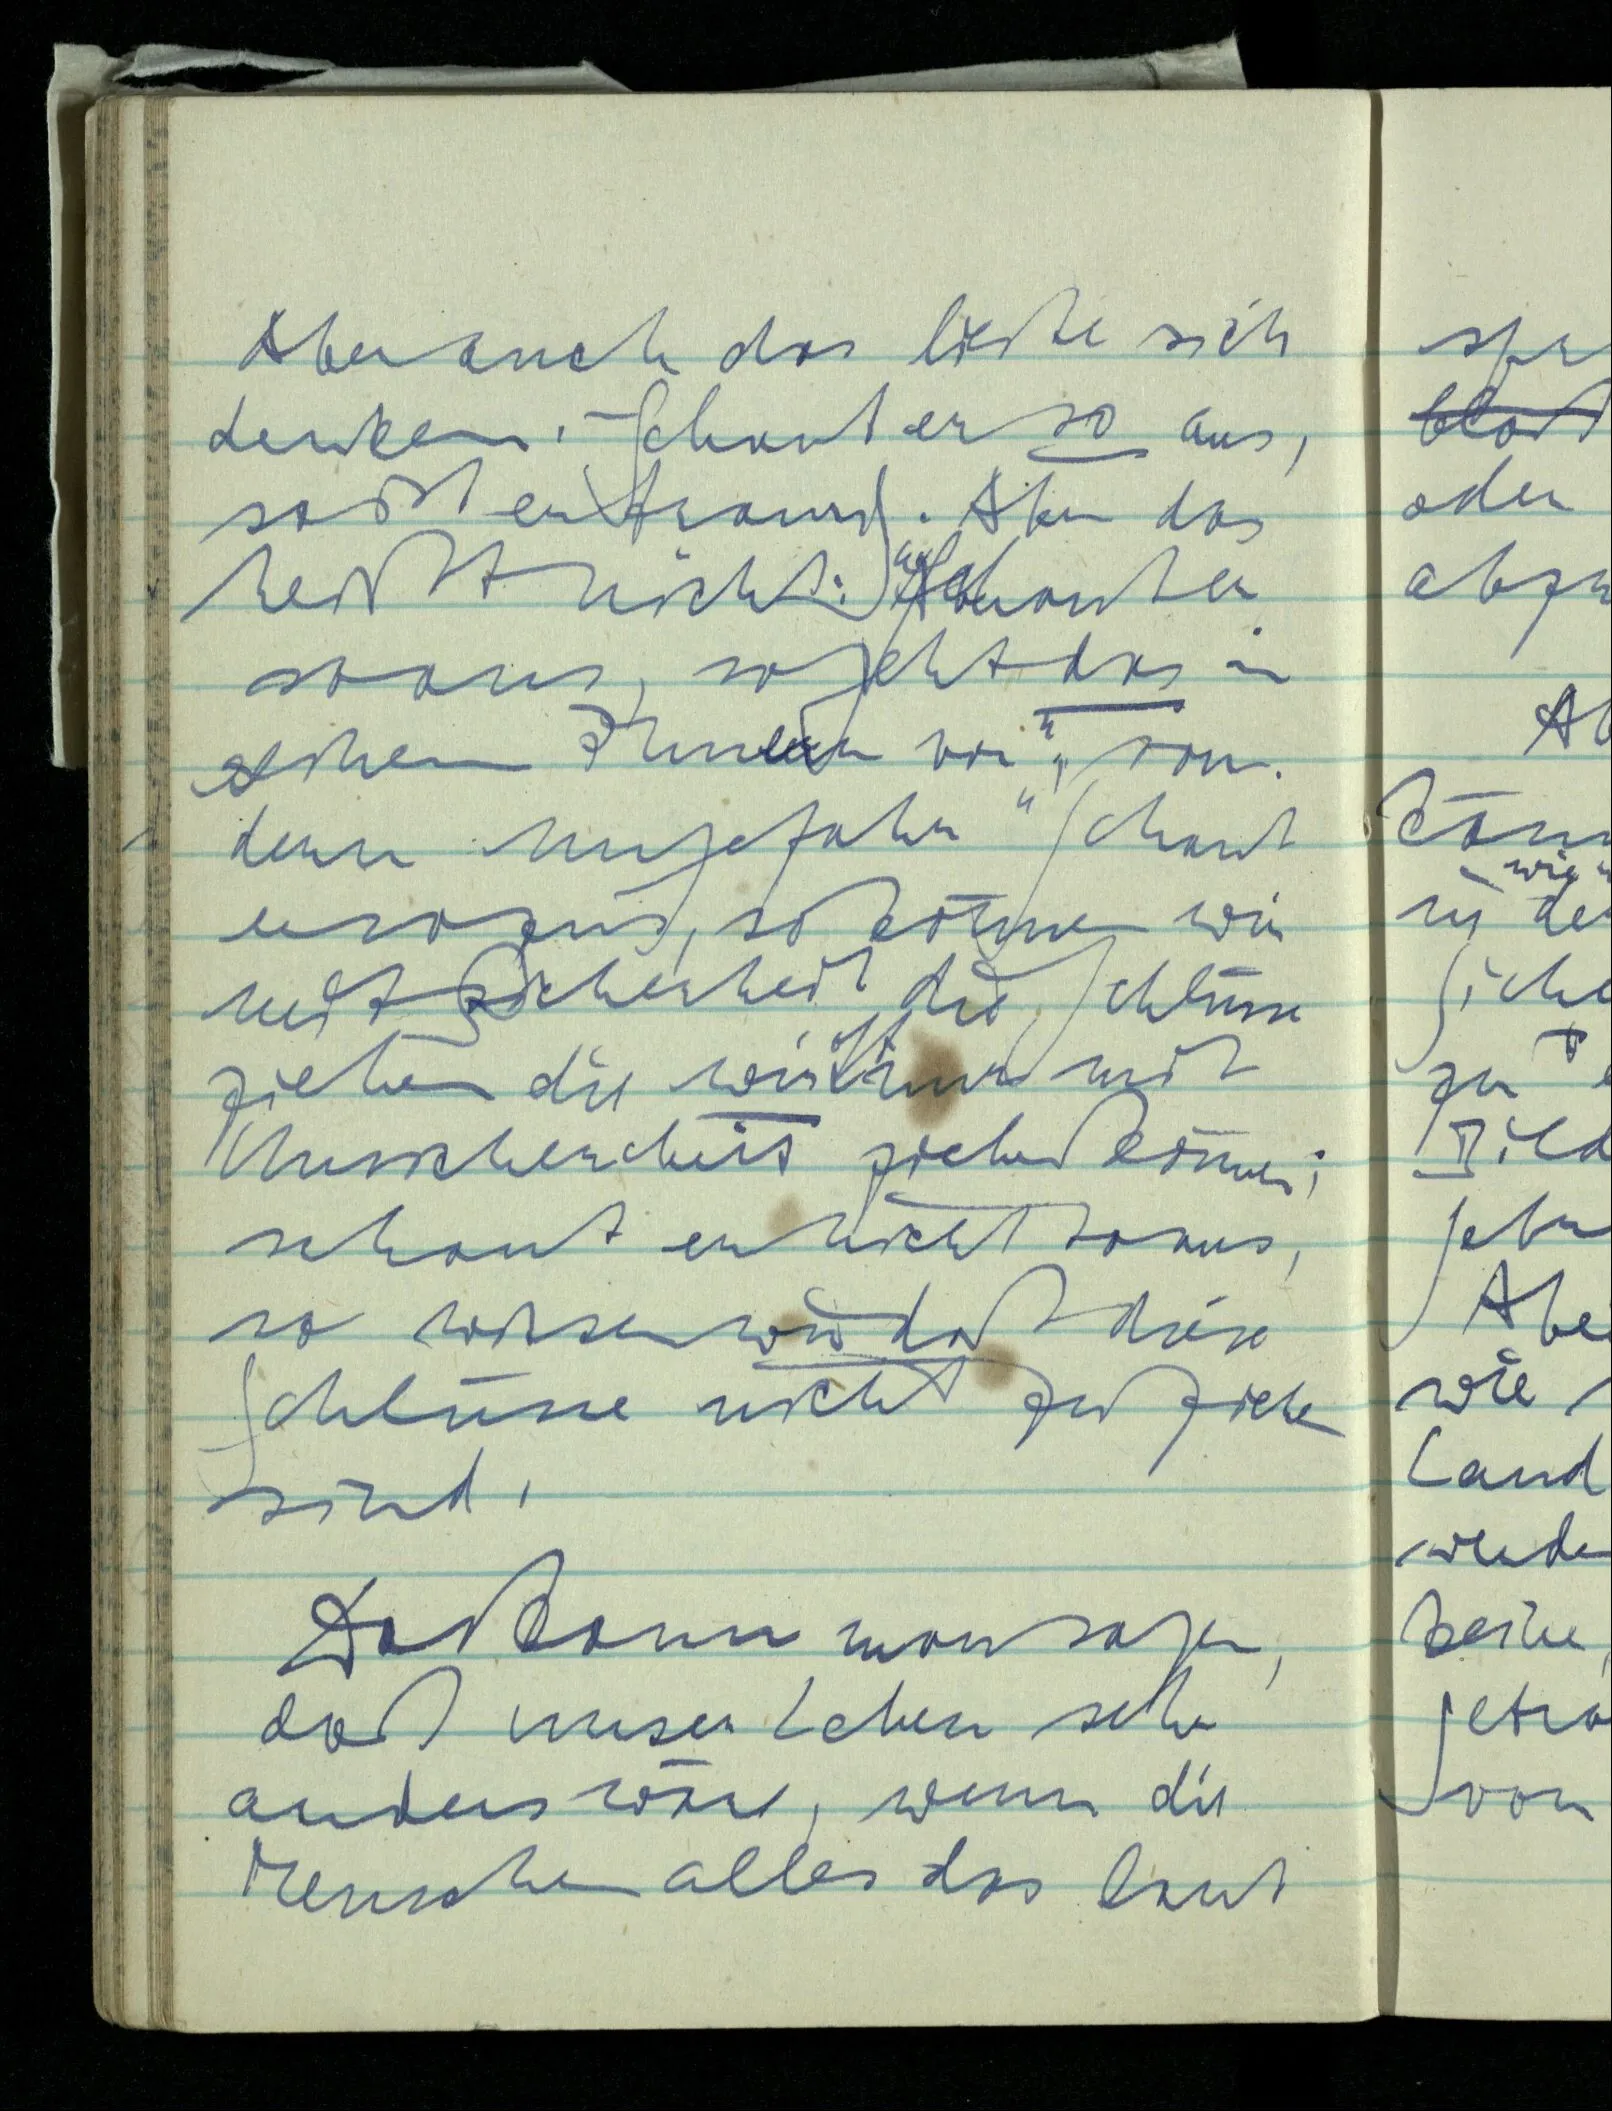 Aber auch das ließe sich
denken. – Schaut er so aus,
so ist er traurig. Aber das
heißt nicht: „Schaut er
so aus, so geht das in
seinem Innern vor", son-
dern ungefähr „Schaut
er so aus, so können wir
mit Sicherheit die Schlüsse
ziehen die wir oft nur mit
Unsicherheit ziehen können;
schaut er nicht so aus,
so wissen wir daß diese
Schlüsse nicht zu ziehen
sind.
Das kann man sagen,
daß unser Leben sehr
anders wäre, wenn die
Menschen alles das laut
spr
bloß
oder
abzu
Ab
könn
wie
in de
Siche
zu
Bild
gebr
Abe
wie
Land
werde
keine,
getra
von